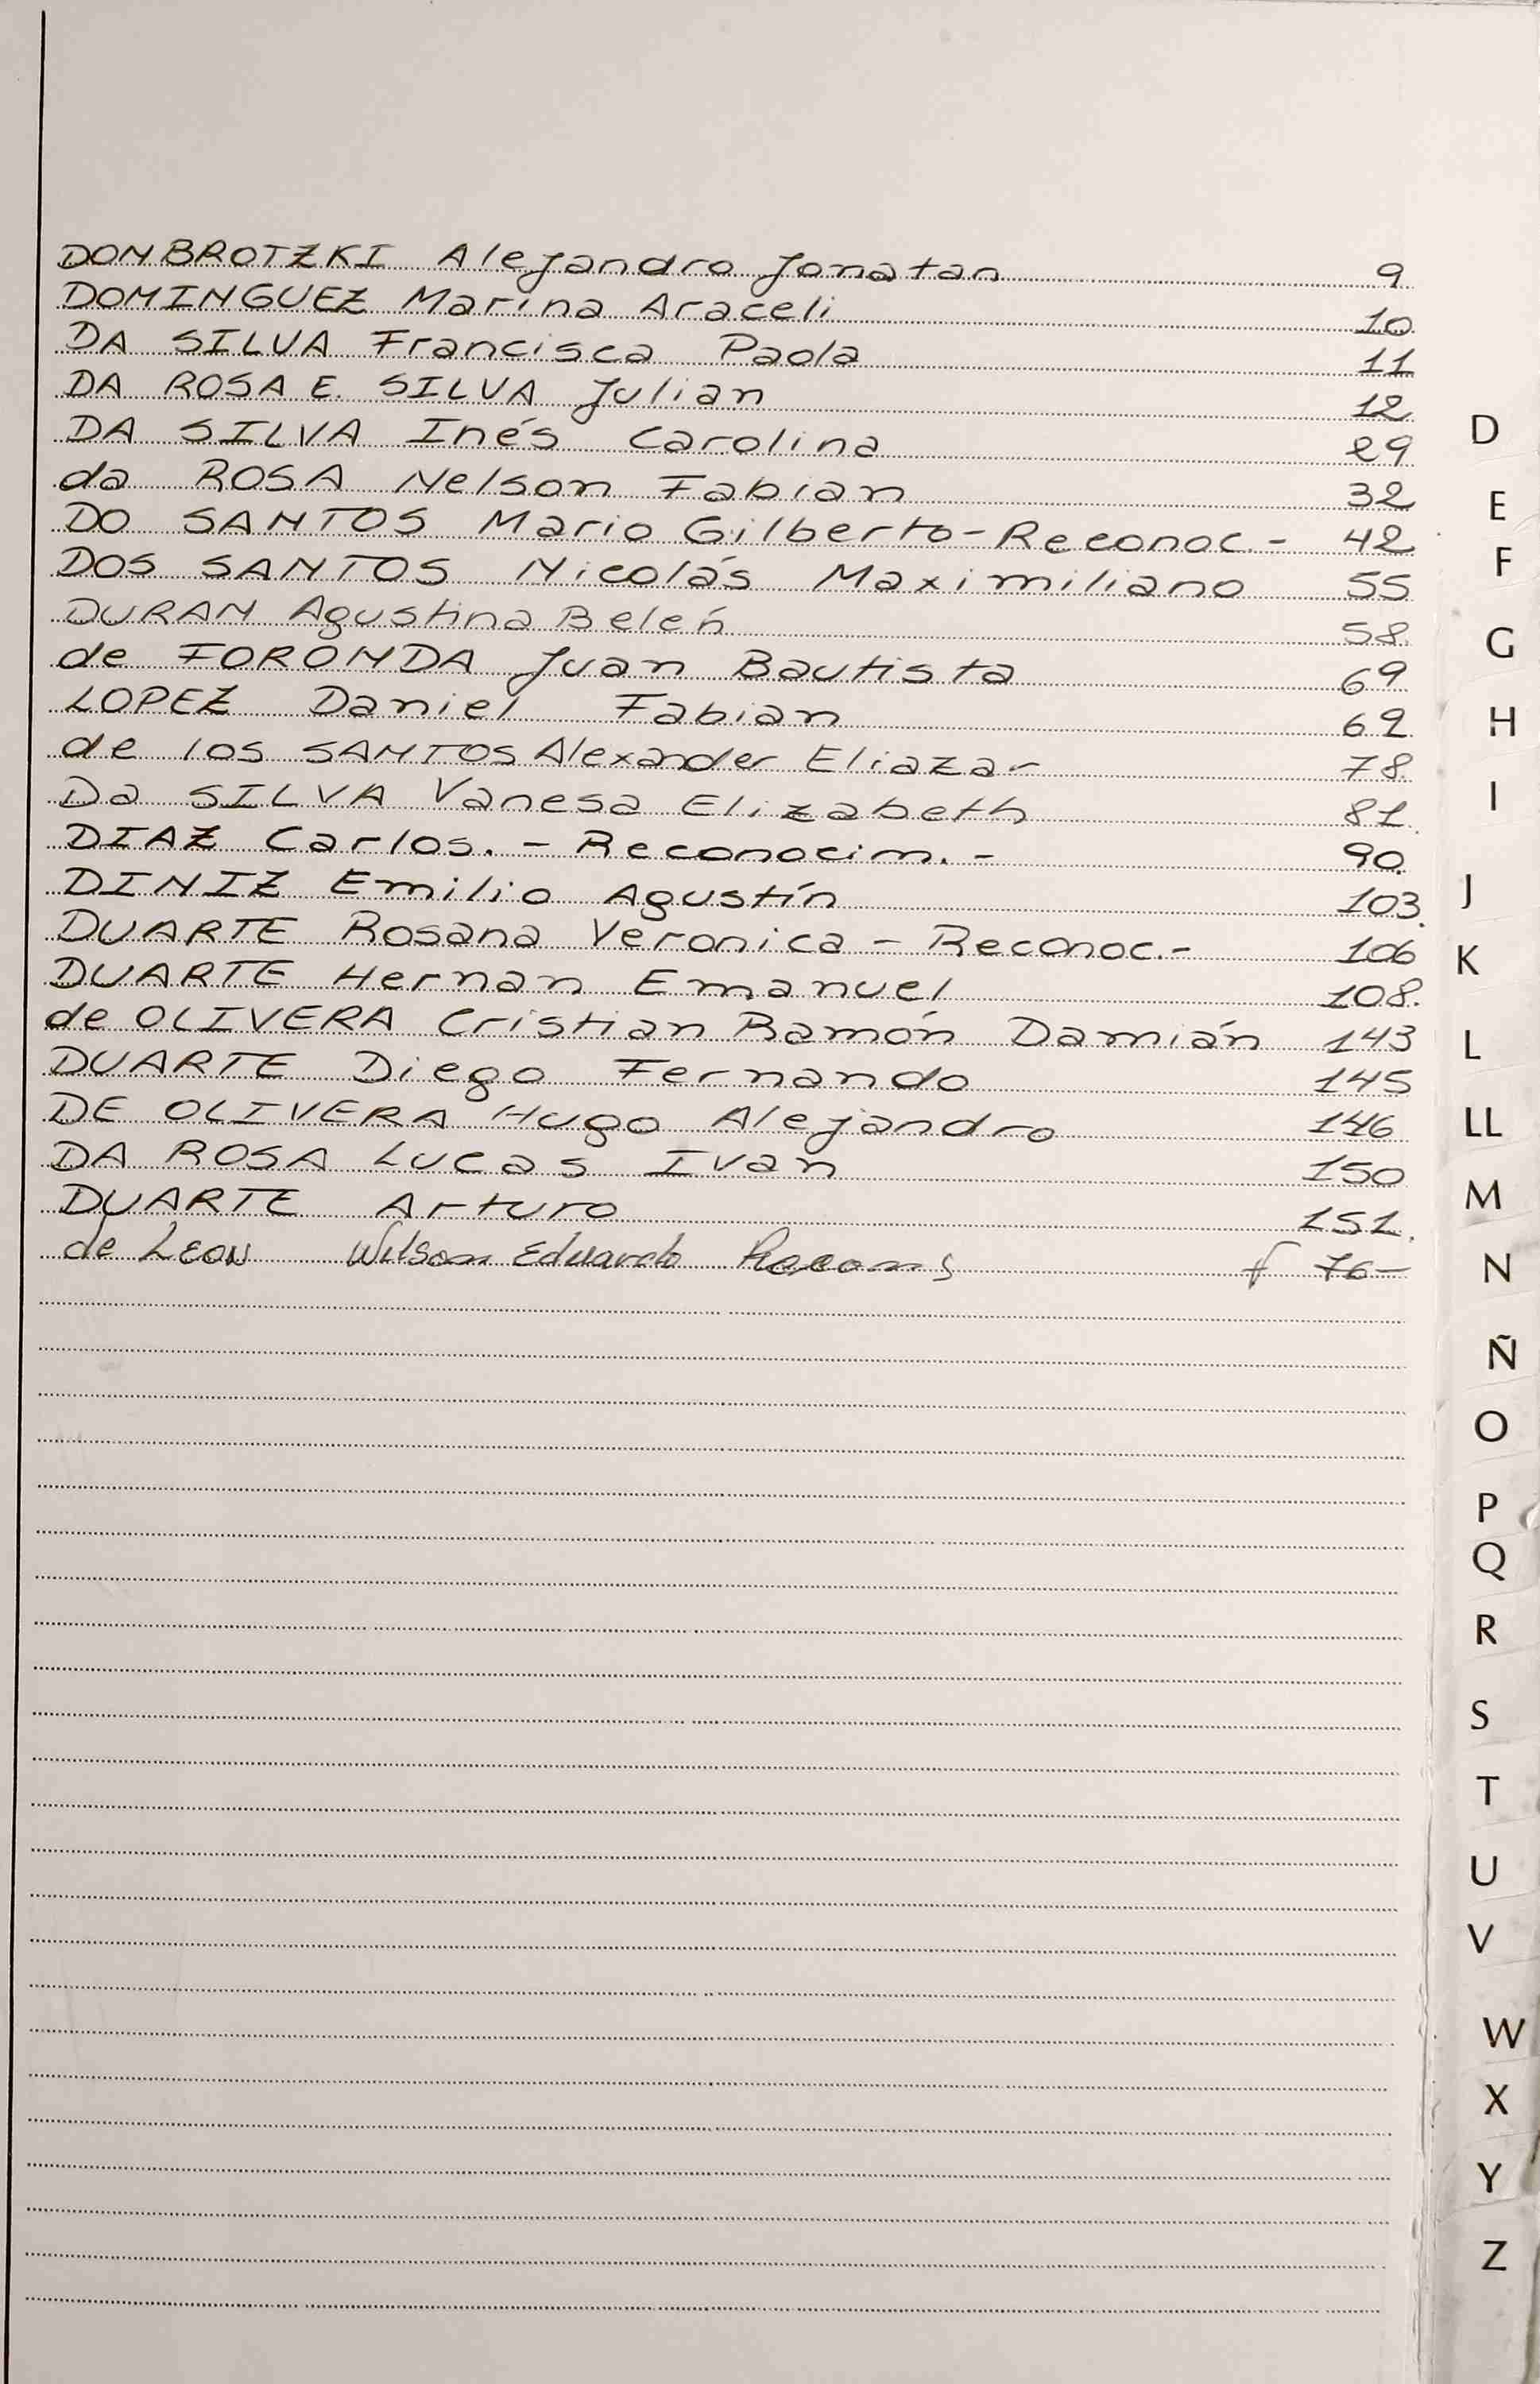 DOMBROTZKI Alejandro Jonatan 9
DOMINGUEZ Marina Araceli 10
DA SILVA Francisca Paola 11
DA ROSA E. SILVA Julian 12
DA SILVA Inés Carolina 29
da ROSA Nelson Fabian 32
DO SANTOS Mario Gilberto - Reconoc.- 42
DOS SANTOS Nicolás Maximiliano 55
DURAN Agustina Belén 58
de FORONDA Juan Bautista 69
LOPEZ Daniel Fabian 69
de los SANTOS Alexander Eliazar 78
Da SILVA Vanesa Elizabeth 81
DIAZ Carlos. - Reconocim. - 90
DINIZ Emilio Agustín 103
DUARTE Rosana Veronica - Reconoc.- 106
DUARTE Hernan Emanuel 108.
de OLIVERA Cristian Ramón Damián 143
DUARTE Diego Fernando 145
DE OLIVERA Hugo Alejandro 146
DA ROSA Lucas Ivan 150
DUARTE Arturo 151.
de LEON Wilson Eduardo f 76-
D
E
F
G
H
I
J
K
L
LL
M
N
Ñ
O
P
Q
R
S
T
U
V
W
X
Y
Z